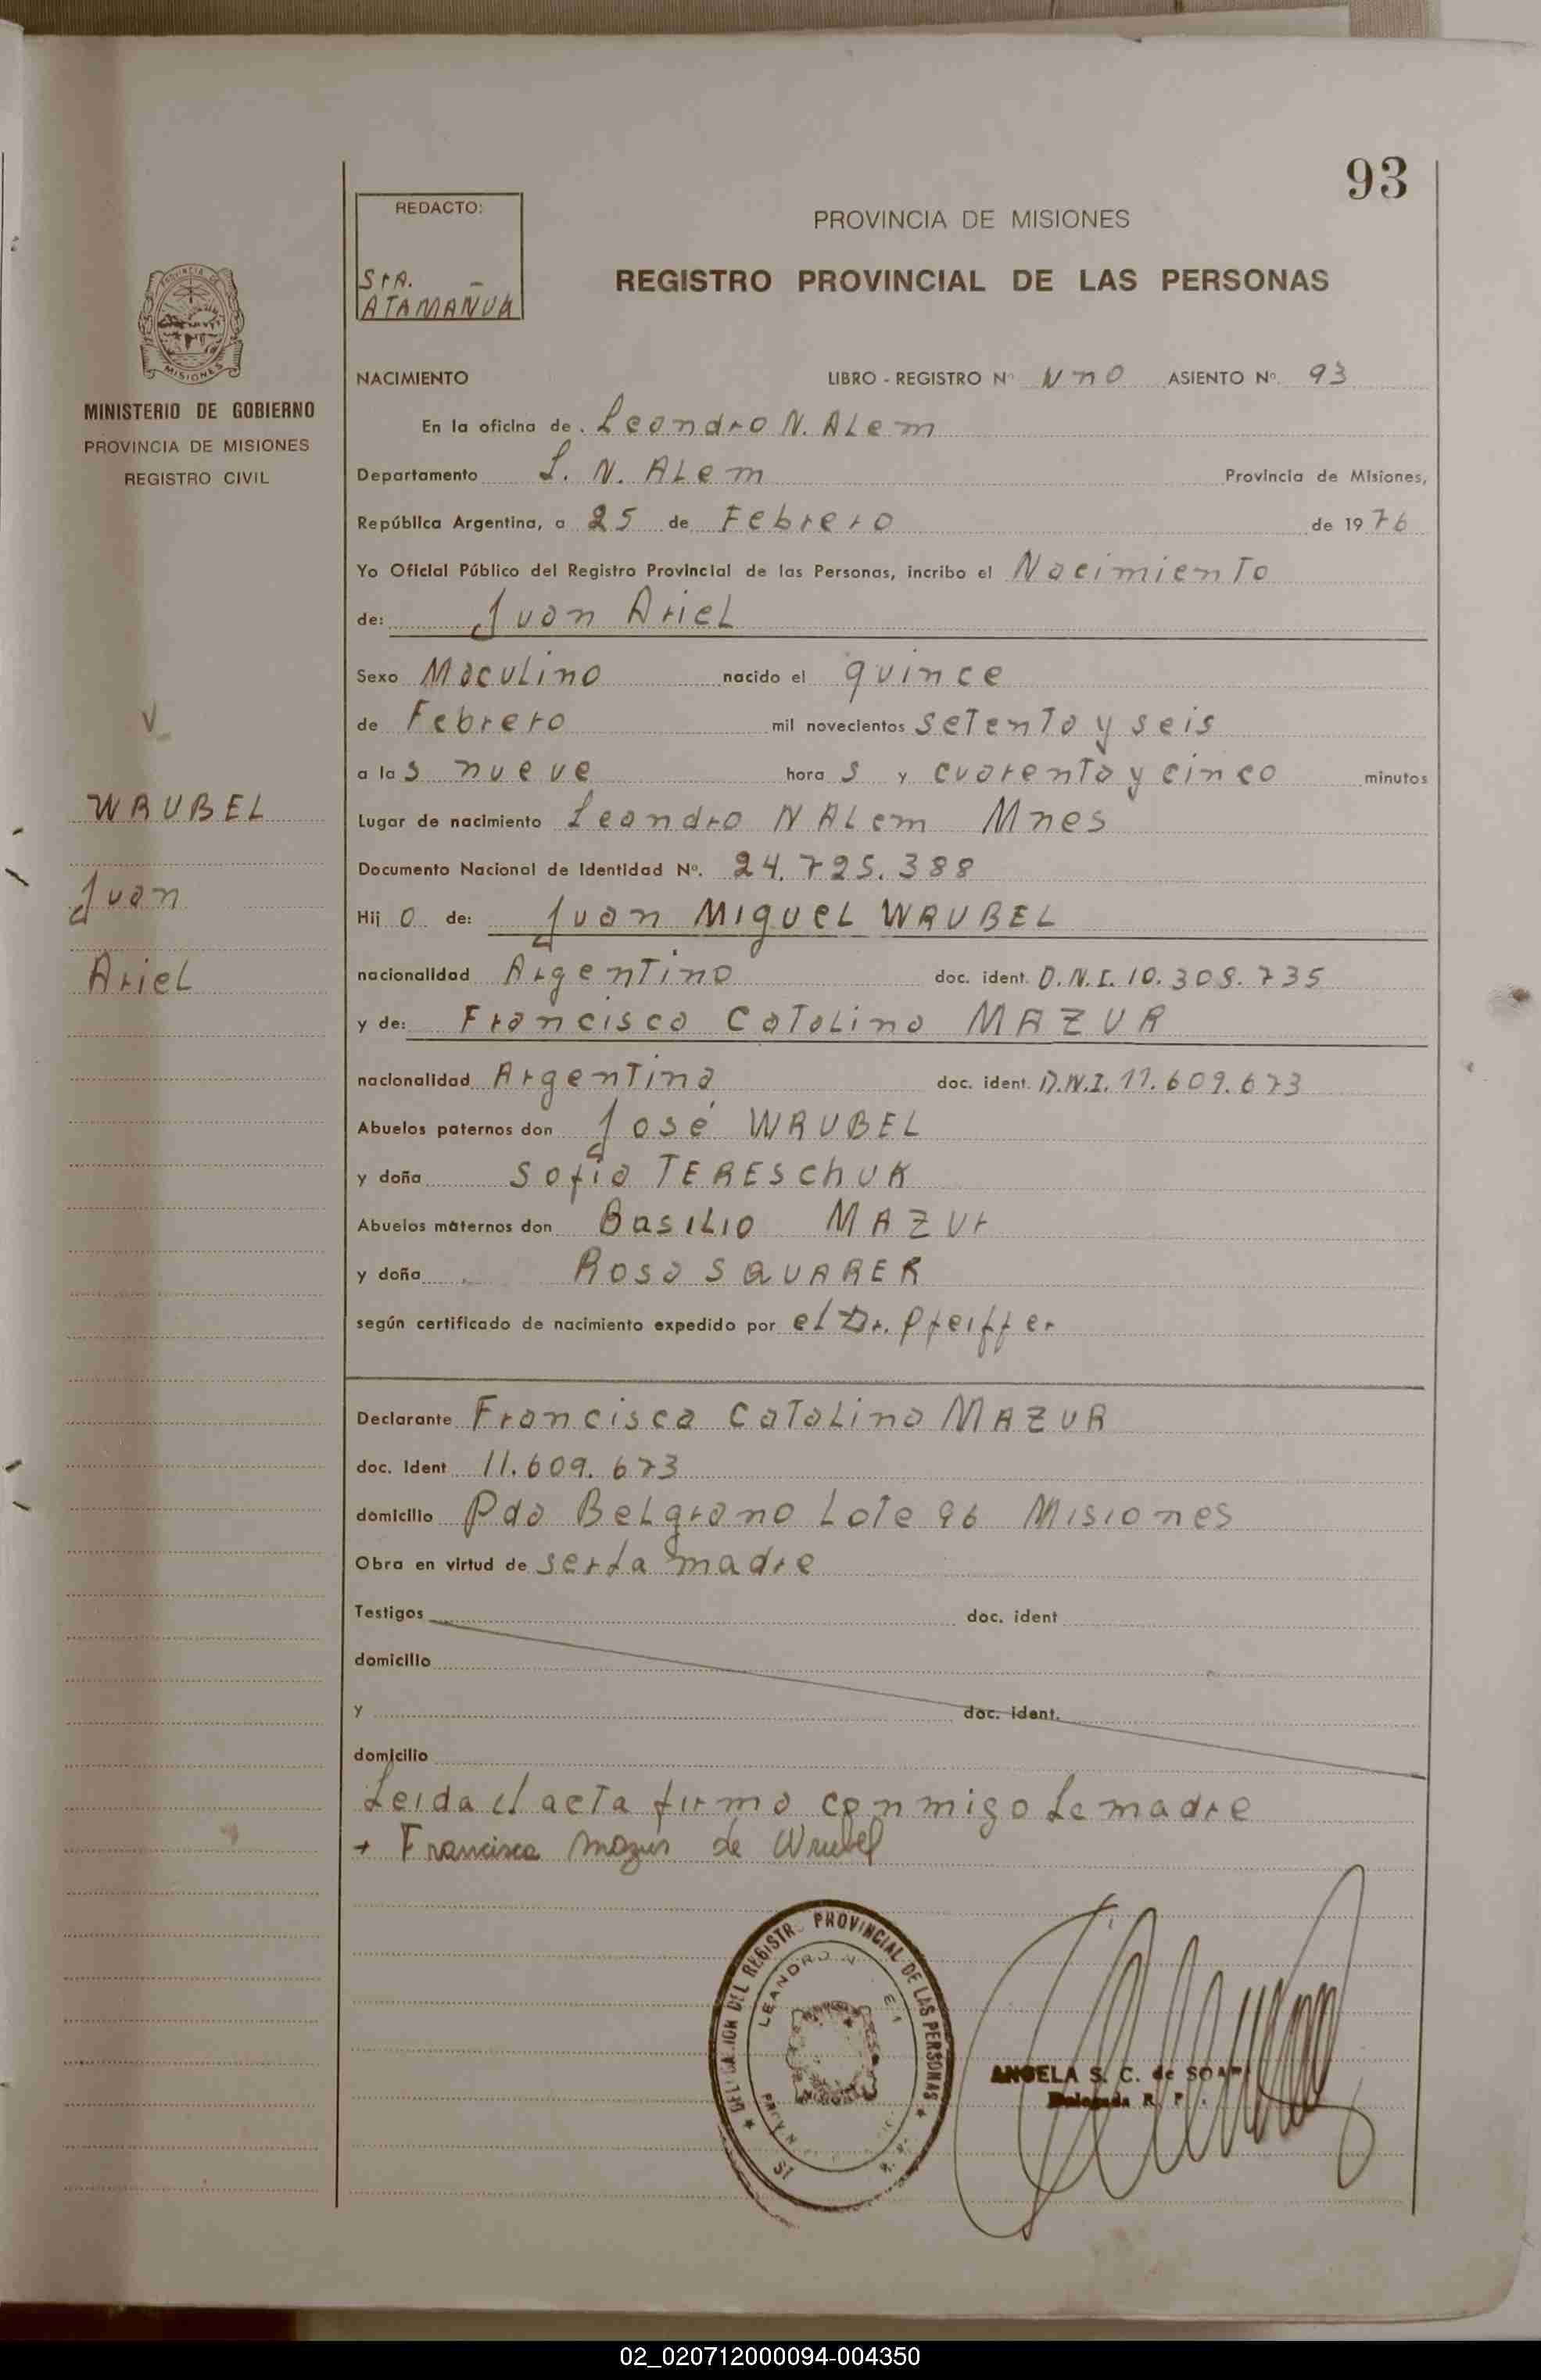 93
REDACTO:
SrA.
ATAMAÑUK
PROVINCIA DE MISIONES
REGISTRO PROVINCIAL DE LAS PERSONAS
PROVINCIA DE
MISIONES
MINISTERIO DE GOBIERNO
PROVINCIA DE MISIONES
REGISTRO CIVIL
NACIMIENTO LIBRO - REGISTRO Nº UnO ASIENTO Nº. 93
En la oficina de Leandro N. ALem
Departamento L. N. ALem Provincia de Misiones,
República Argentina, a 25 de Febrero de 1976
Yo Oficial Público del Registro Provincial de las Personas, incribo el Nacimiento
de: Juan Ariel
Sexo MacuLino nacido el quince
de Febrero mil novecientos setenta y seis
a las nueve horas y cuarenta y cinco minutos
Lugar de nacimiento Leandro N ALem Mnes
Documento Nacional de Identidad Nº. 24.725.388
Hijo de: Juan MigueL WRUBEL
nacionalidad Argentino doc. ident. D.N.I. 10.308.735
y de: Francisca CataLina MAZUR
nacionalidad Argentina doc. ident. D.N.I. 11.609.673
Abuelos paternos don José WRUBEL
y doña Sofia TERESchUK
Abuelos maternos don BasiLio MAZUr
y doña Rosa SQUARER
según certificado de nacimiento expedido por eL Dr. Pfeiffer
Declarante Francisca CataLina MAZUR
doc. Ident 11.609.673
domicilio Pda BeLgrano Lote 96 Misiones
Obra en virtud de ser la madre
Testigos doc. ident
domicilio
y doc. ident.
domicilio
Leida el acta firma conmigo La madre
+ Francisca Mazur de Wrubel
WRUBEL
Juan
ArieL
DELEGACION DEL REGISTR PROVINCIAL DE LAS PERSONAS
LEANDRO N
ANGELA S. C. de
Delegada R. P.
02_020712000094-004350